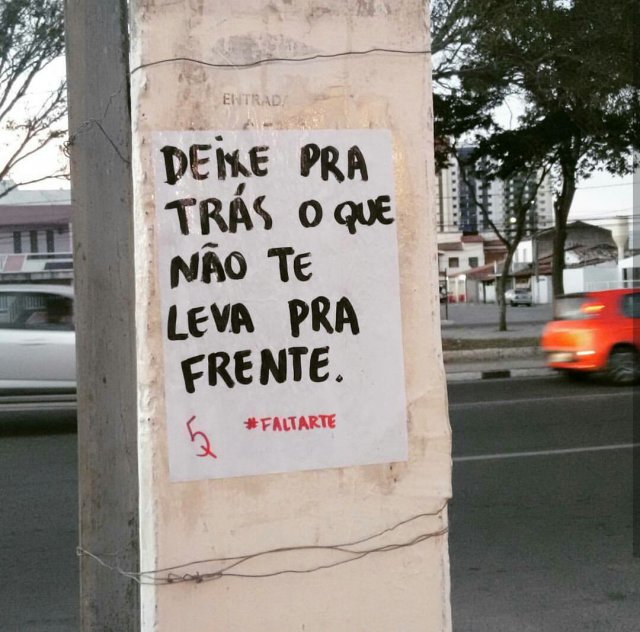 ENTRADA
DEIXE PRA
TRÁS O QUE
NÃO TE
LEVA PRA
FRENTE.
#FALTARTE